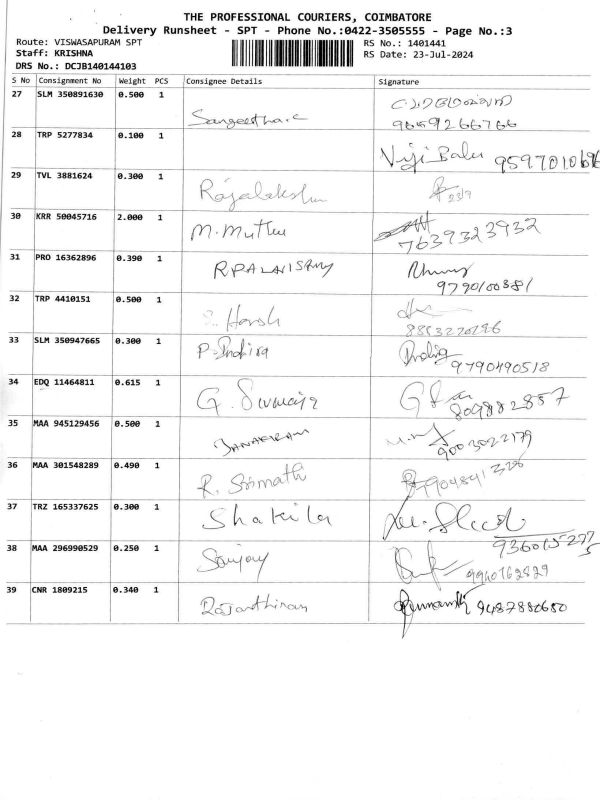 THE PROFESSIONAL COURIERS, COIMBATORE
Delivery Runsheet - SPT - Phone No.:0422-3505555 - Page No.:3
Route: VISWASAPURAM SPT RS No.: 1401441
Staff: KRISHNA RS Date: 23-Jul-2024
DRS No.: DCJB140144103
S No Consignment No Weight PCS Consignee Details Signature
27 SLM 350891630 0.500 1
Sangeetha.c 9659266766
28 TRP 5277834 0.100 1
Viji Balu 9597010696
29 TVL 3881624 0.300 1
Rajalakshmi 23/9
30 KRR 50045716 2.000 1
M. Muthu 7639323932
31 PRO 16362896 0.390 1
R PALANISAMY 9790100381
32 TRP 4410151 0.500 1
S. Harsh
33 SLM 350947665 0.300 1
P. Indira 9790490518
34 EDQ 11464811 0.615 1
G. 809882857
35 MAA 945129456 0.500 1
JANAKIRAM 9003022179
36 MAA 301548289 0.490 1
R. Srimathi
37 TRZ 165337625 0.300 1
Shakila
38 MAA 296990529 0.250 1
Sanjay 9940762829
39 CNR 1809215 0.340 1
Rajanthiran 9487880680